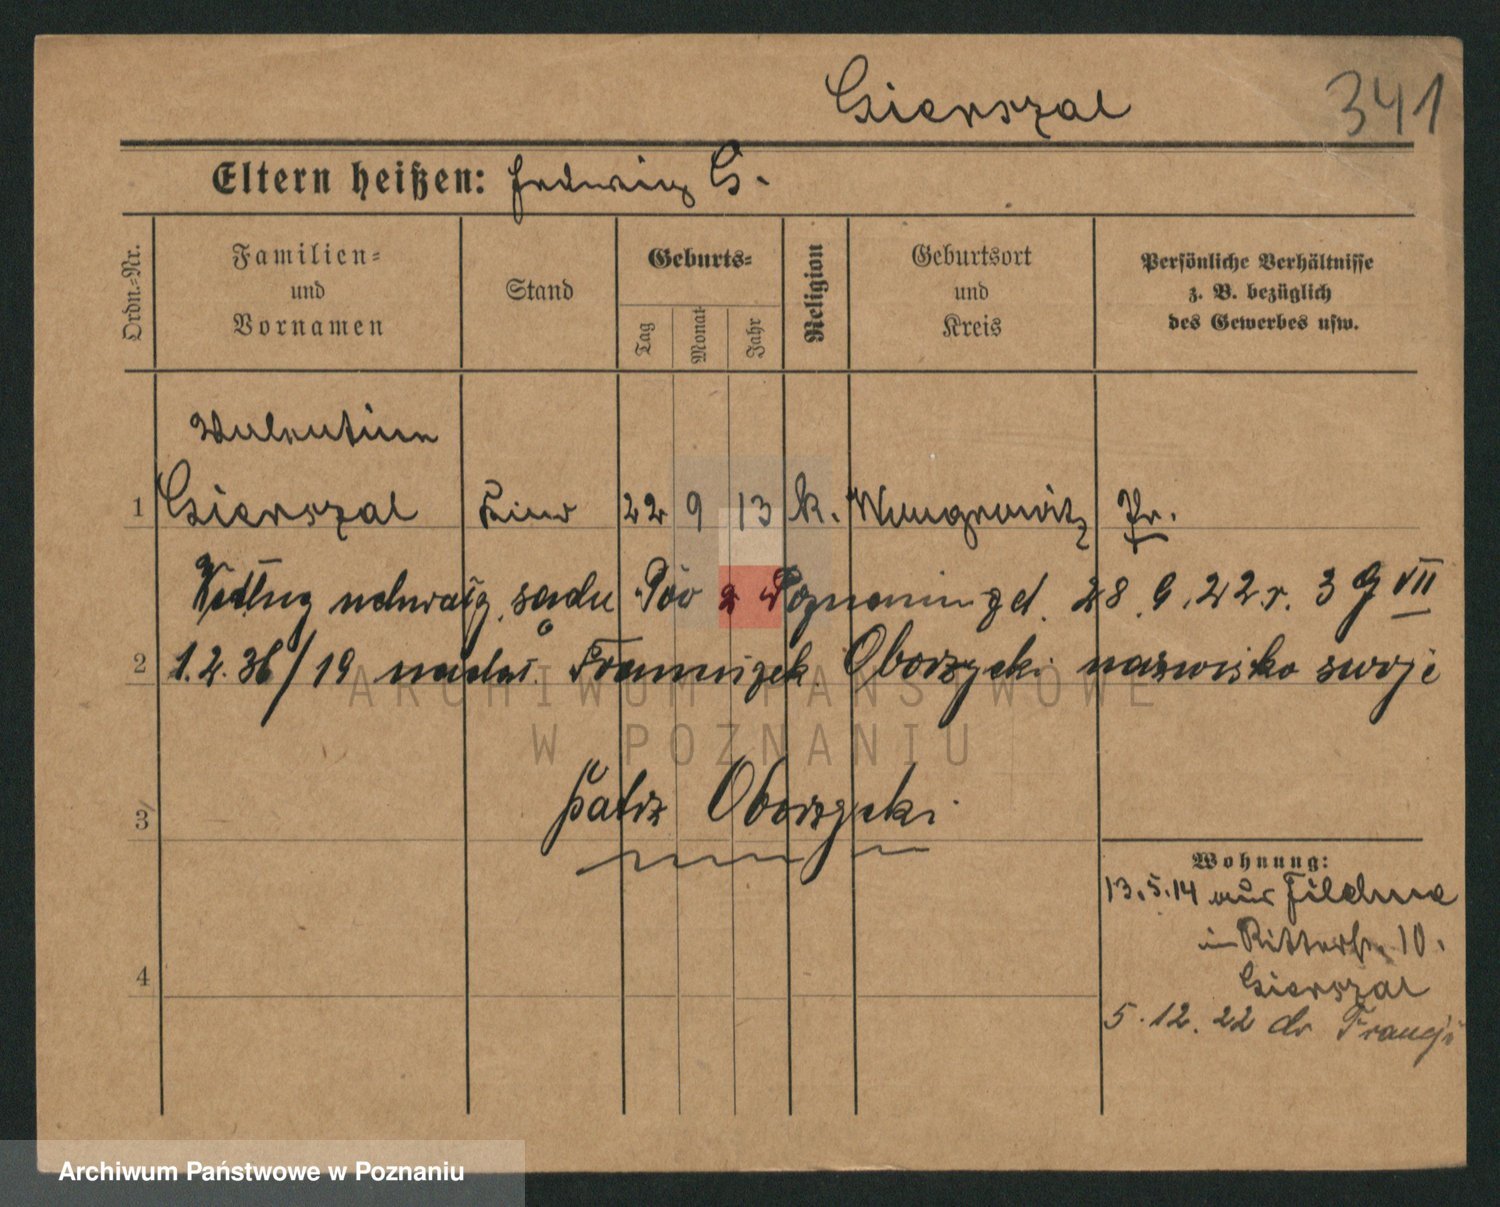 Gierszal
341
Eltern heißen: Hedwig G.
Ordn.=Nr.
Familien=
und
Vornamen
Stand
Geburts=
Tag
Monat
Jahr
Religion
Geburtsort
und
Kreis
Persönliche Verhältnisse
z. B. bezüglich
des Gewerbes usw.
Valentin
1 Gierszal Kind 22 9 13 k. Wongrowitz Pr.
Według sądu Pow w Poznaniu z d. 28.9.22 r. 3 G VII
2 1.2.36/19 nadał Franciszek Oborzycki nazwisko swoje
3 patrz Oborzycki
Wohnung:
13.5.14 aus
in Ritterstr. 10.
4 Gierszal
5.12.22 do Francji
ARCHIWUM PAŃSTWOWE
W POZNANIU
Archiwum Państwowe w Poznaniu